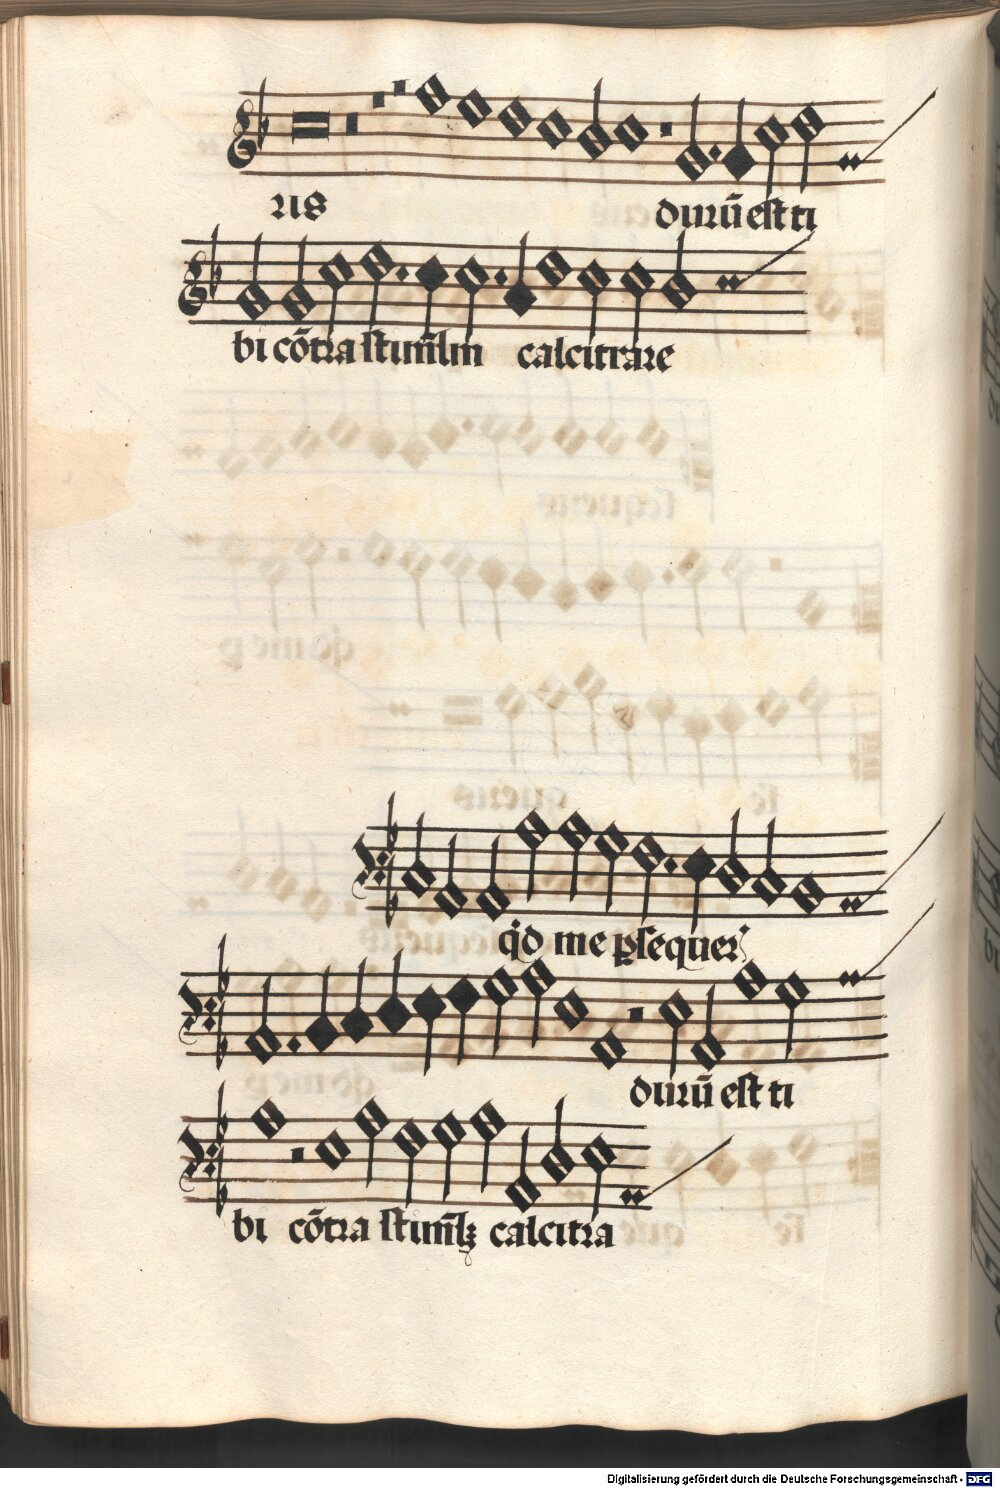 ris durū est ti
bi cōtra stim̄lm calcitrare
qd me psequer
durū est ti
bi cōtra stim̄lꝫ calcitra
Digitalisierung gefördert durch die Deutsche Forschungsgemeinschaft - DFG